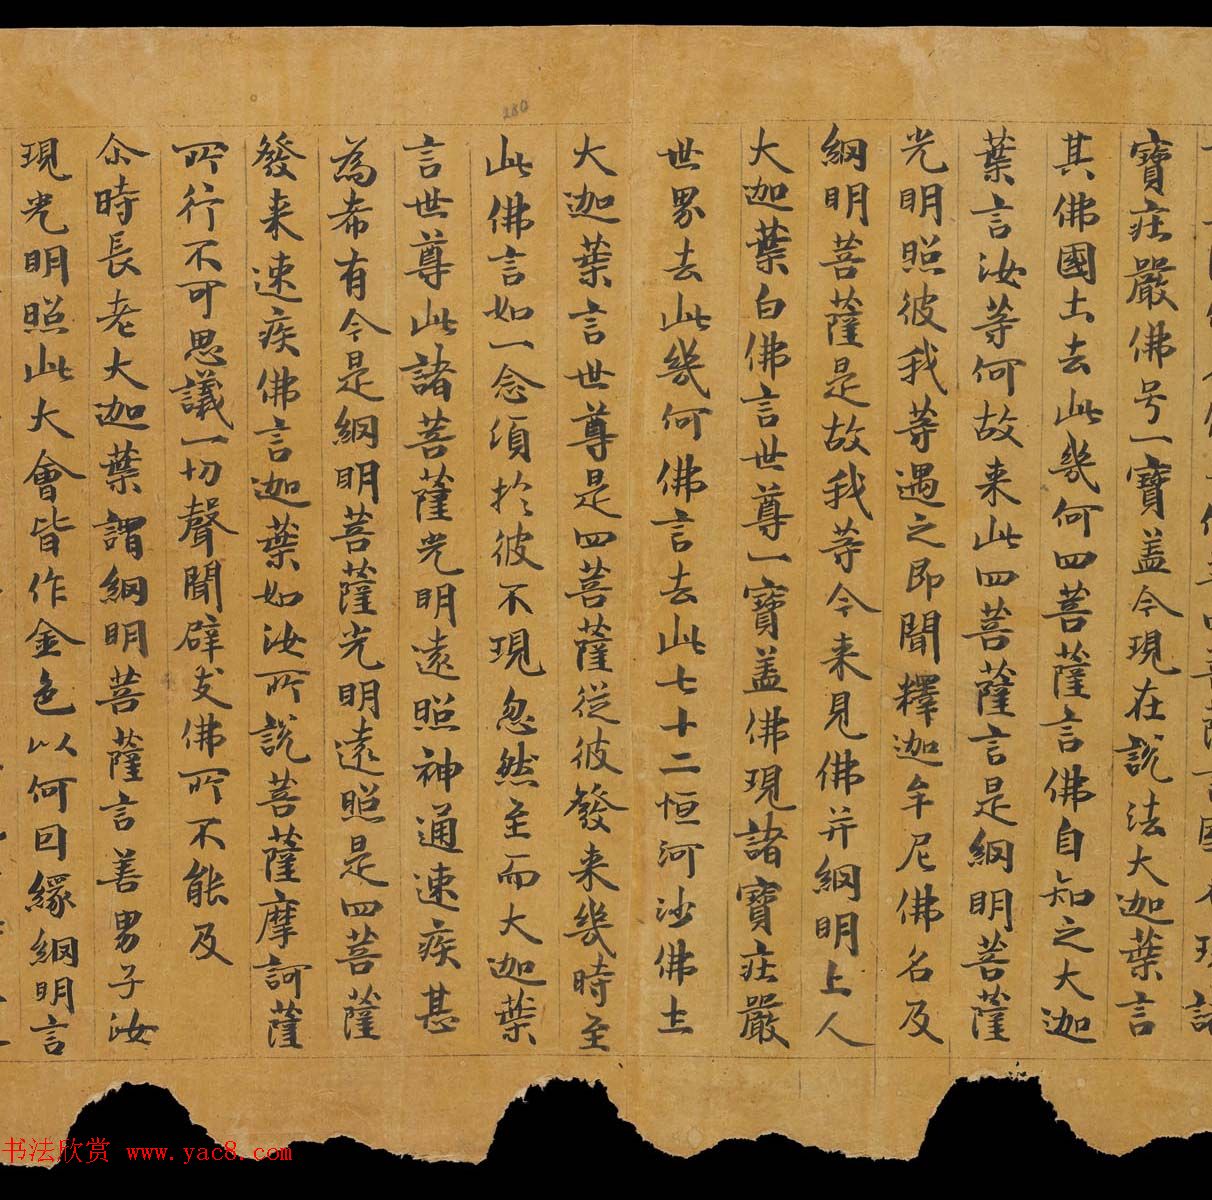 寶莊嚴佛号一寶盖今現在說法大迦葉言
其佛國土去此幾何四菩薩言佛自知之大迦
葉言汝等何故来此四菩薩言是網明菩薩
光明照彼我等遇之即聞釋迦牟尼佛名及
網明菩薩是故我等今来見佛并網明上人
大迦葉白佛言世尊一寶盖佛現諸寶莊嚴
世界去此幾何佛言去此七十二恒河沙佛土
大迦葉言世尊是四菩薩従彼發来幾時至
此佛言如一念須於彼不現忽然至而大迦葉
言世尊此諸菩薩光明遠照神通速疾甚
為希有今是網明菩薩光明遠照是四菩薩
發来速疾佛言迦葉如汝所說菩薩摩訶薩
所行不可思議一切聲聞辟支佛所不能及
尒時長老大迦葉謂網明菩薩言善男子汝
現光明照此大會皆作金色以何因緣網明言
280
书法欣赏 www.yac8.com